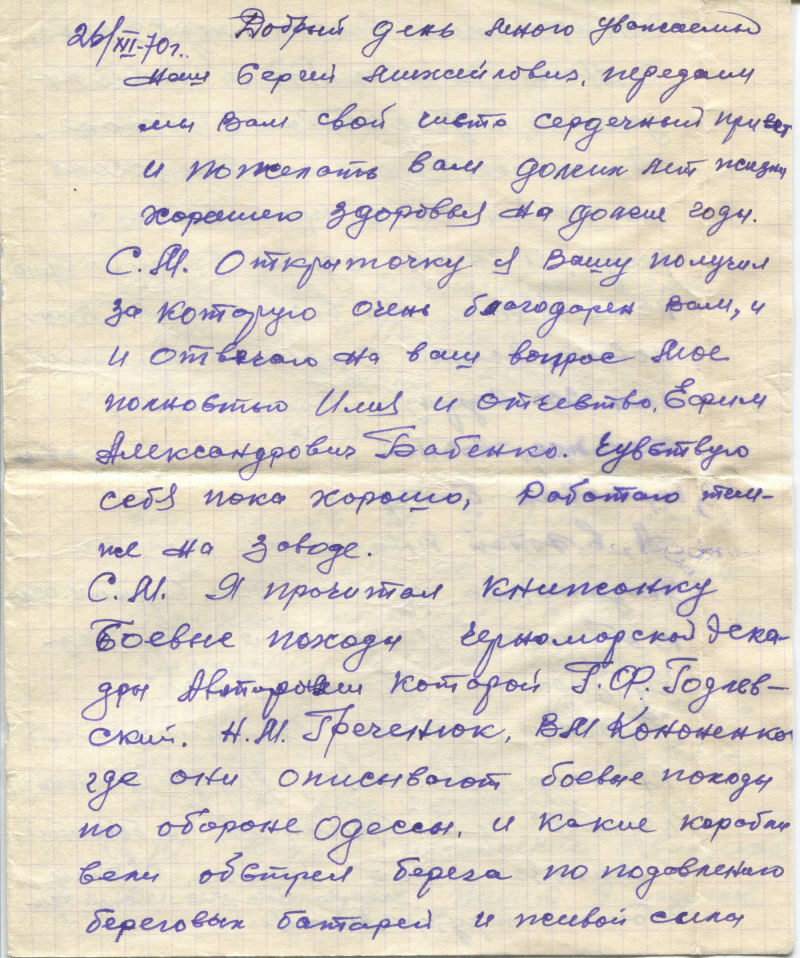 26/XII-70г. Добрый день много уважаемый
наш Сергей Михайлович, передаем
мы Вам свой чисто сердечный привет
и пожелать Вам долгих лет жизни
хорошего здоровья на долгие годы.
С.М. Открыточку я Вашу получил
за которую очень благодарен Вам, и
и отвечаю на ваш вопрос мое
полностью Имя и отчевство. Ефим
Александрович Бабенко. Чувствую
себя пока хорошо, работаю там-
же на заводе.
С.М. Я прочитал книжонку
Боевые походы Черноморской эска-
дры Авторами которой Г.Ф. Годлев-
ский. Н.М. Греченюк, ВМ Кононенко
где они описывают боевые походы
по обороне Одессы. и какие корабли
вели обстрел берега по подавлению
береговых батарей и живой силы